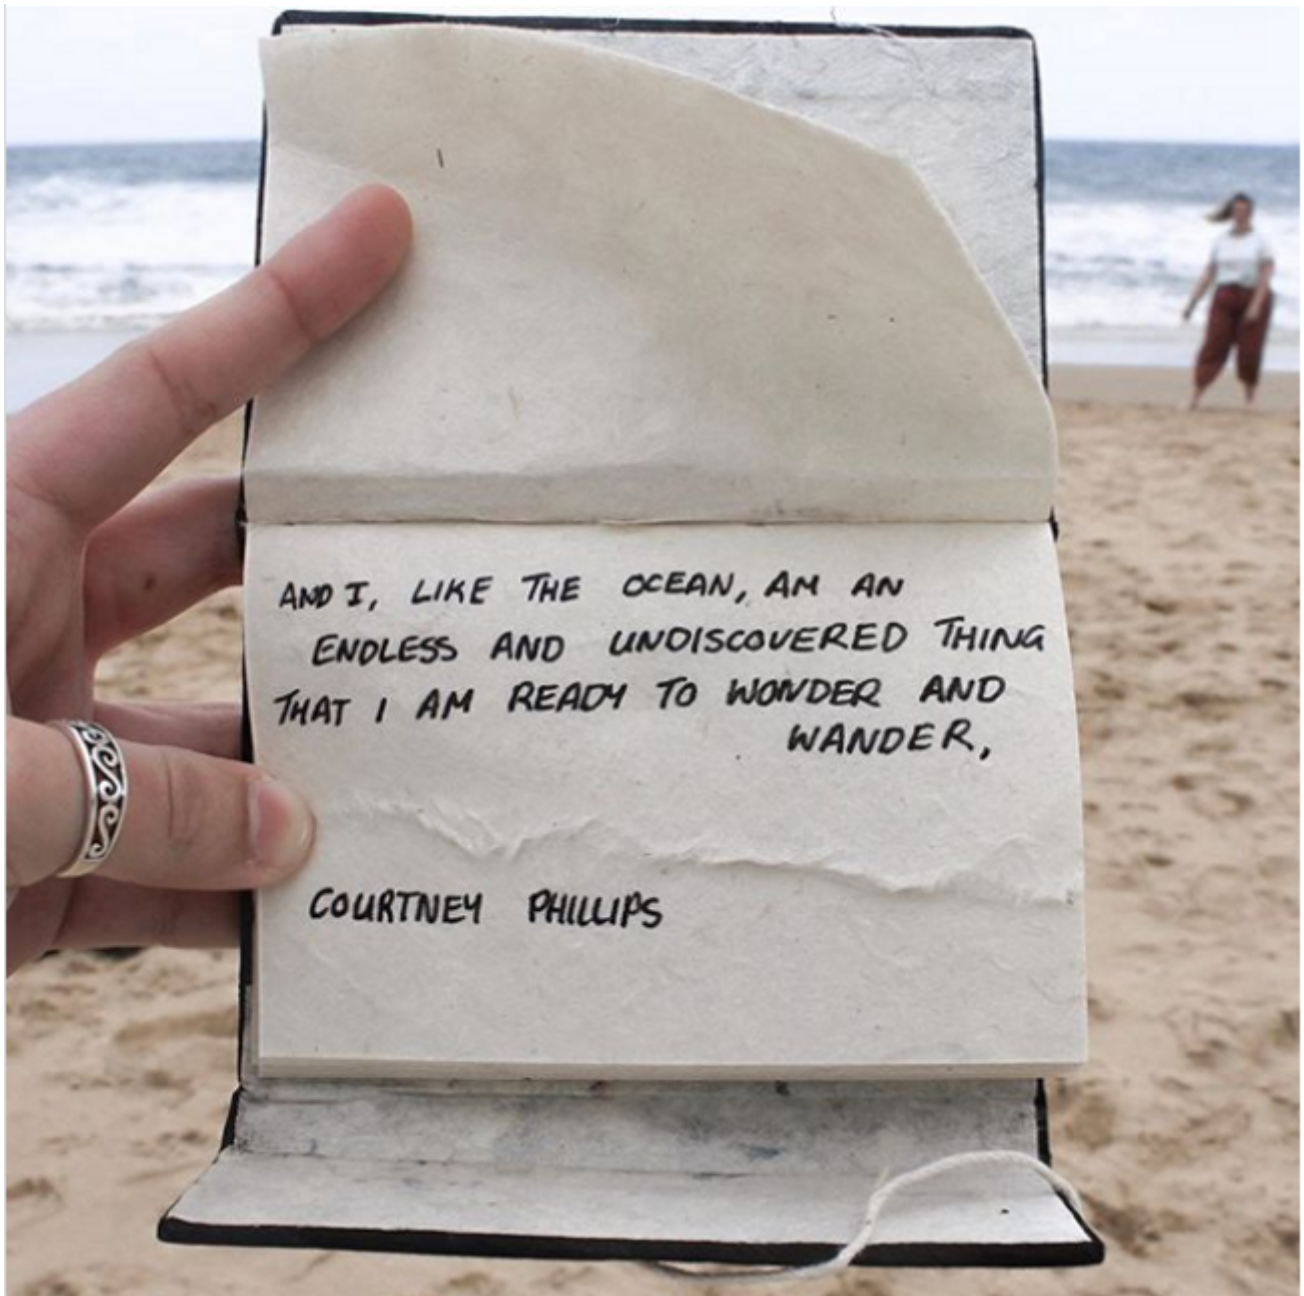 AND I, LIKE THE OCEAN, AM AN
ENDLESS AND UNDISCOVERED THING
THAT I AM READY TO WONDER AND
WANDER,
COURTNEY PHILLIPS